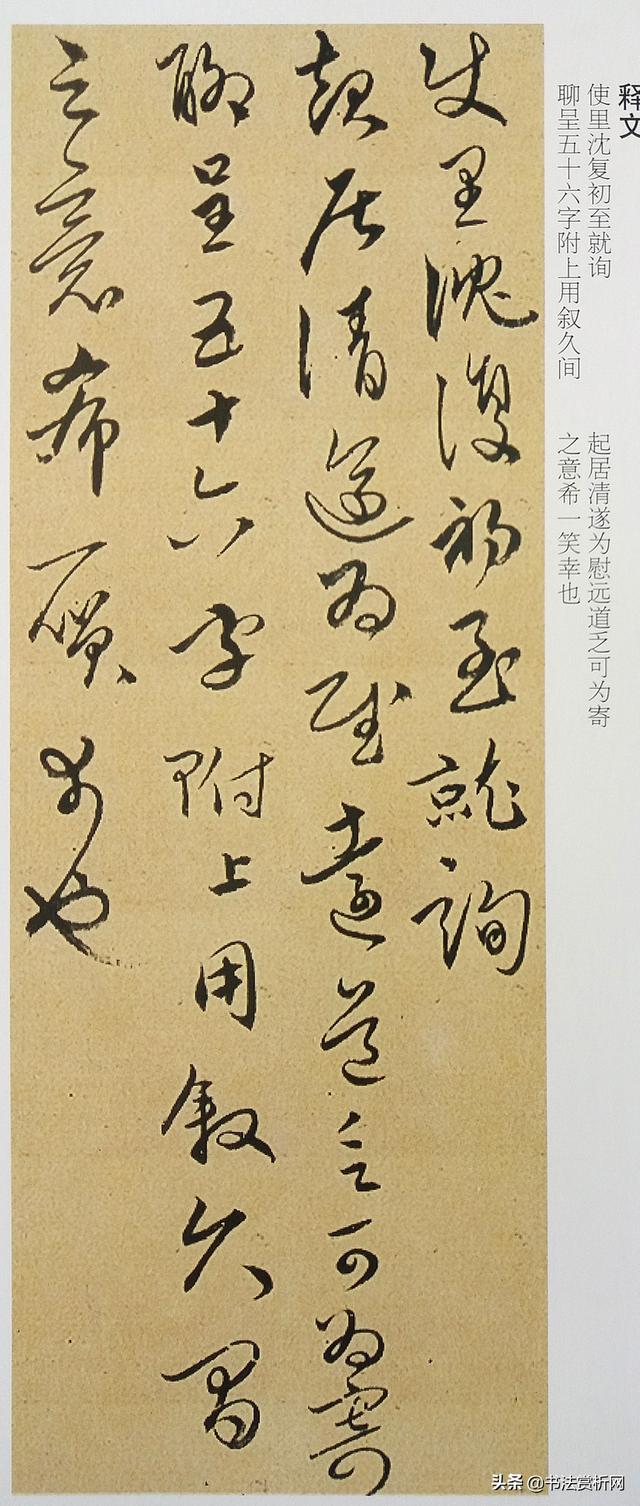 释文
使里沈复初至就询
起居清遂为慰远道乏可为寄
聊呈五十六字附上用叙久间
之意希一笑幸也
使里復初至就詢
起居清為慰遠道乏可為寄
聊呈五十六字附上用叙久
之意希一幸也
头条 @书法赏析网